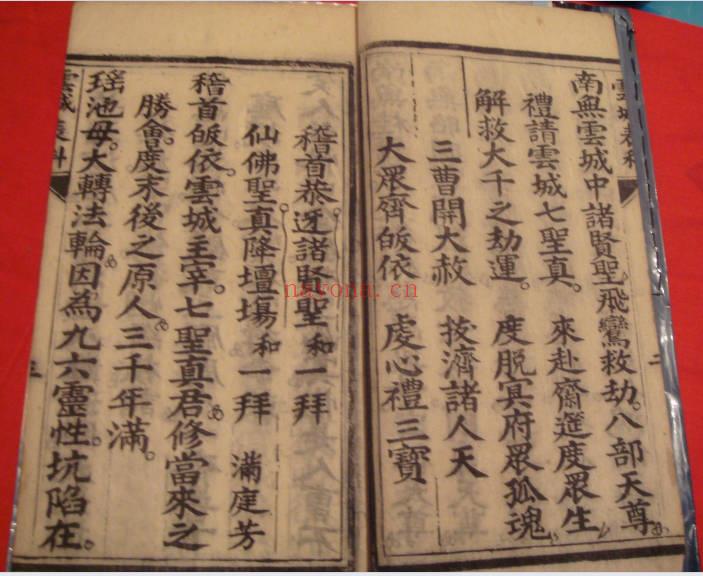 雲城表科
二
南無雲城中諸賢聖。飛鸞救劫。八部天尊。
禮請雲城七聖真。 來赴齋筵度眾生
解救大千之劫運。 度脫冥府眾孤魂。
三曹開大赦 拔濟諸人天
大眾齊皈依 虔心禮三寶
稽首恭迓諸賢聖 和 一拜
仙佛聖真降壇場 和 一拜 滿庭芳
稽首皈依。雲城主宰。七聖真君。修當來之
勝會。度末後之原人。三千年滿。
瑶池母。大轉法輪。因為九六靈性。坑陷在。
雲城表科
三
nayona.cn